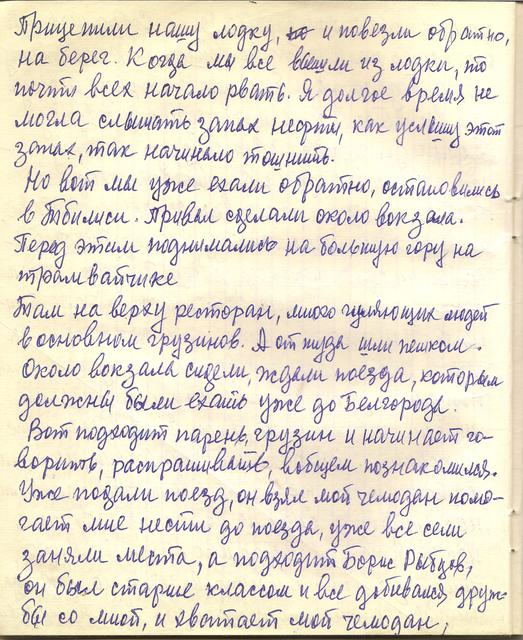 Прицепили нашу лодку, но и повезли обратно,
на берег. Когда мы все вышли из лодки, то
почти всех начало рвать. Я долгое время не
могла слышать запах нефти, как услышу этот
запах, так начинало тошнить.
Но вот мы уже ехали обратно, остановились
в Тбилиси. Привал сделали около вокзала.
Перед этим поднимались на большую гору на
трамвайчике
Там на верху ресторан, много гуляющих людей
в основном грузинов. А оттуда шли пешком.
Около вокзала сидели, ждали поезда, которым
должны были ехать уже до Белгорода.
Вот подходит парень, грузин и начинает го-
ворить, распрашивать, вобщем познакомился.
Уже подали поезд, он взял мой чемодан помо-
гает мне нести до поезда, уже все сели
заняли места, а подходит Борис Рыбцов,
он был старше классом и все добивался друж-
бы со мной, и хватает мой чемодан,